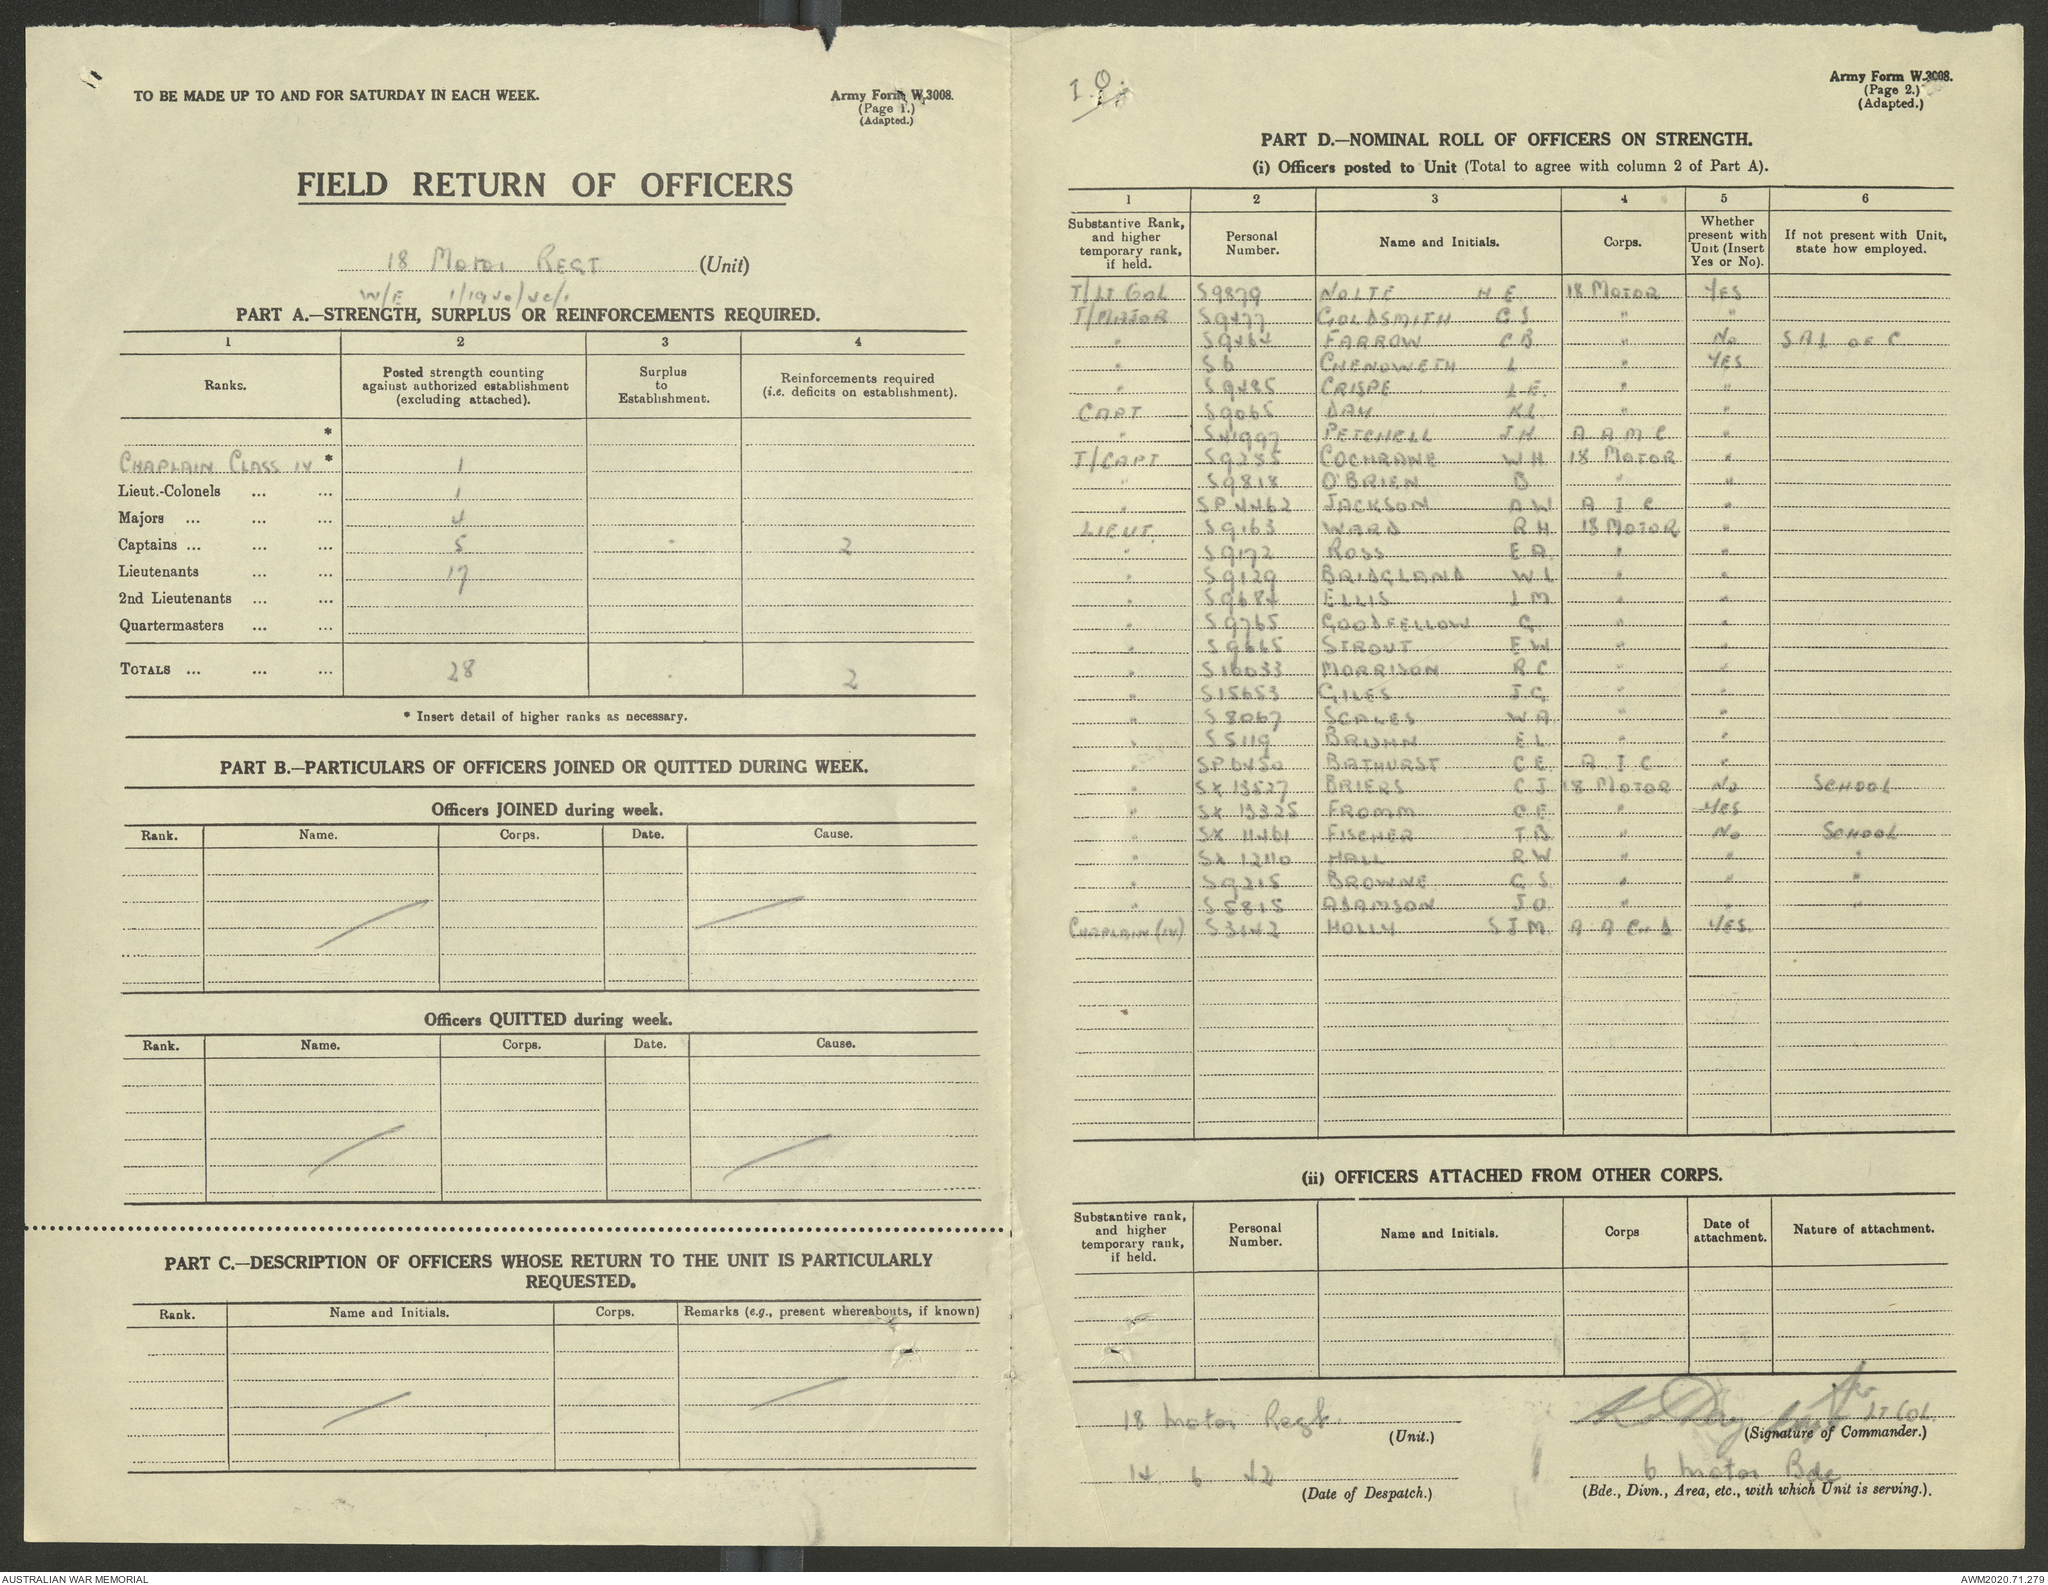 TO BE MADE UP TO AND FOR SATURDAY IN EACH WEEK.
Army Form W.3008.
(Page 1.)
(Adapted.)
FIELD RETURN OF OFFICERS
18 MOTOR REGT (Unit)
W/E 1/1940/42/1
PART A.—STRENGTH, SURPLUS OR REINFORCEMENTS REQUIRED.
1 2 3 4
Ranks. Posted strength counting against authorized establishment (excluding attached). Surplus to Establishment. Reinforcements required (i.e. deficits on establishment).
*
CHAPLAIN CLASS IV * 1
Lieut.-Colonels ... ... 1
Majors ... ... ... 4
Captains ... ... ... 5 - 2
Lieutenants ... ... 17
2nd Lieutenants ... ...
Quartermasters ... ...
TOTALS ... ... ... 28 . 2
* Insert detail of higher ranks as necessary.
PART B.—PARTICULARS OF OFFICERS JOINED OR QUITTED DURING WEEK.
Officers JOINED during week.
Rank. Name. Corps. Date. Cause.
Officers QUITTED during week.
Rank. Name. Corps. Date. Cause.
PART C.—DESCRIPTION OF OFFICERS WHOSE RETURN TO THE UNIT IS PARTICULARLY
REQUESTED.
Rank. Name and Initials. Corps. Remarks (e.g., present whereabouts, if known)
I.O.
Army Form W.3008.
(Page 2.)
(Adapted.)
PART D.—NOMINAL ROLL OF OFFICERS ON STRENGTH.
(i) Officers posted to Unit (Total to agree with column 2 of Part A).
1 2 3 4 5 6
Substantive Rank, and higher temporary rank, if held. Personal Number. Name and Initials. Corps. Whether present with Unit (Insert Yes or No). If not present with Unit, state how employed.
T/LT COL S9879 NOLTE H E 18 MOTOR YES
T/MAJOR S9477 GOLDSMITH C S " "
" S9464 FARROW C B " NO S A L OF C
" S6 CHENOWETH L " YES
" S9485 CRISPE L E. " "
CAPT S9065 DAY K L " "
" S41997 PETCHELL J H A A M C "
T/CAPT S9285 COCHRANE W H 18 MOTOR "
" S9818 O'BRIEN B " "
" SP4462 JACKSON A W A I C "
LIEUT. S9163 WARD R H 18 MOTOR "
" S9172 ROSS E A " "
" S9129 BRIDGLAND W L " "
" S9684 ELLIS I M " "
" S9765 GOODFELLOW G. " "
" S9665 STROUT E W " "
" S10033 MORRISON R C " "
" S15653 GILES J G " "
" S8067 SCALES W A " "
" S5119 BRUHN E L " "
" SP6450 BATHURST C E A I C "
" SX 13527 BRIERS C J 18 MOTOR NO SCHOOL
" SX 13325 FROMM C E " YES
" SX 11461 FISCHER T B " NO SCHOOL
" SX 12110 HALL R W " " "
" S9215 BROWNE C S " " "
" S5815 ADAMSON J O " " "
CHAPLAIN (IV) S3142 HOLLY S J M A A CH D YES.
(ii) OFFICERS ATTACHED FROM OTHER CORPS.
Substantive rank, and higher temporary rank, if held. Personal Number. Name and Initials. Corps Date of attachment. Nature of attachment.
18 Motor Regt. for LT COL.
(Unit.) (Signature of Commander.)
14 6 42 6 Motor Bde
(Date of Despatch.) (Bde., Divn., Area, etc., with which Unit is serving.).
AUSTRALIAN WAR MEMORIAL
AWM2020.71.279